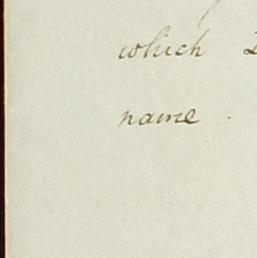 which
name .